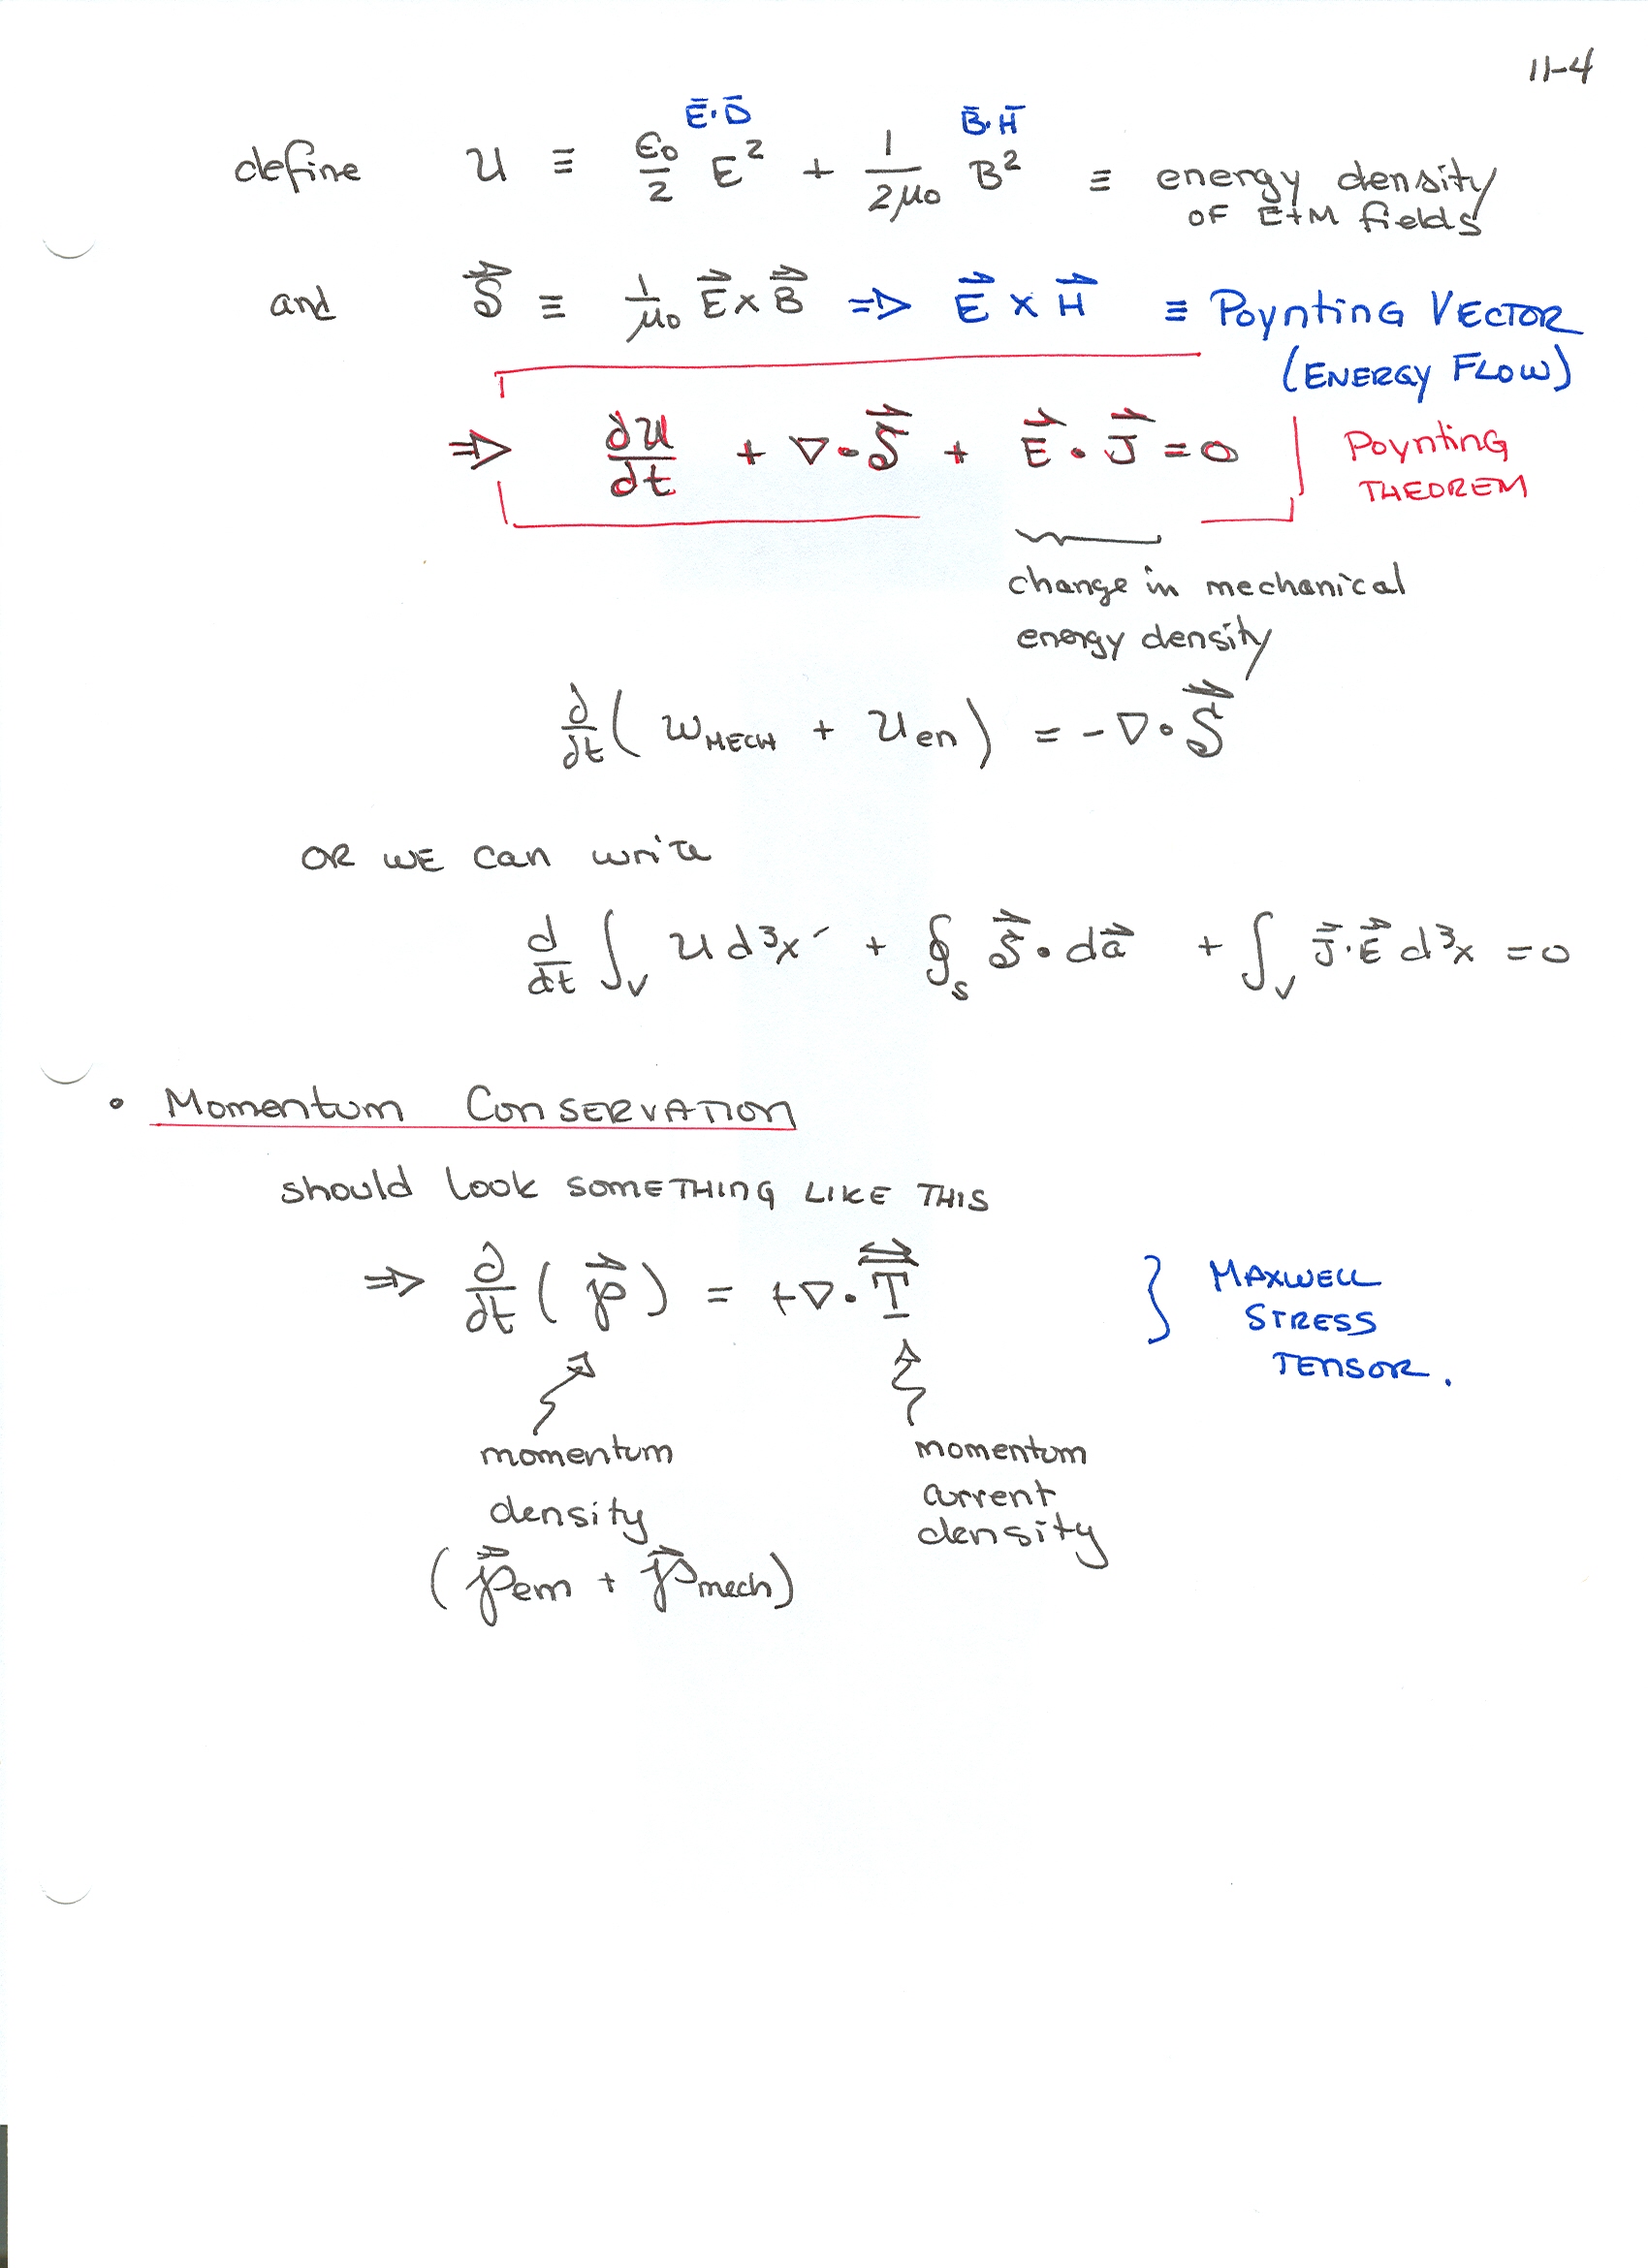 11-4
E̅·D̅ B̅·H̅
define u ≡ ε₀/2 E² + 1/2μ₀ B² ≡ energy density
OF E+M fields
and S⃗ ≡ 1/μ₀ E⃗ × B⃗ ⇒ E⃗ × H⃗ ≡ Poynting VECTOR
(ENERGY FLOW)
⇒ ∂u/∂t + ∇·S⃗ + E⃗·J⃗ = 0 Poynting
THEOREM
change in mechanical
energy density
∂/∂t ( w_MECH + u_en ) = -∇·S⃗
OR WE can write
d/dt ∫_V u d³x + ∮_S S⃗·da⃗ + ∫_V J⃗·E⃗ d³x = 0
• Momentum CONSERVATION
should look SOMETHING LIKE THIS
⇒ ∂/∂t (℘⃗) = +∇·T⃡ } MAXWELL
STRESS
TENSOR.
momentum
density
(℘⃗em + ℘⃗mech)
momentum
current
density